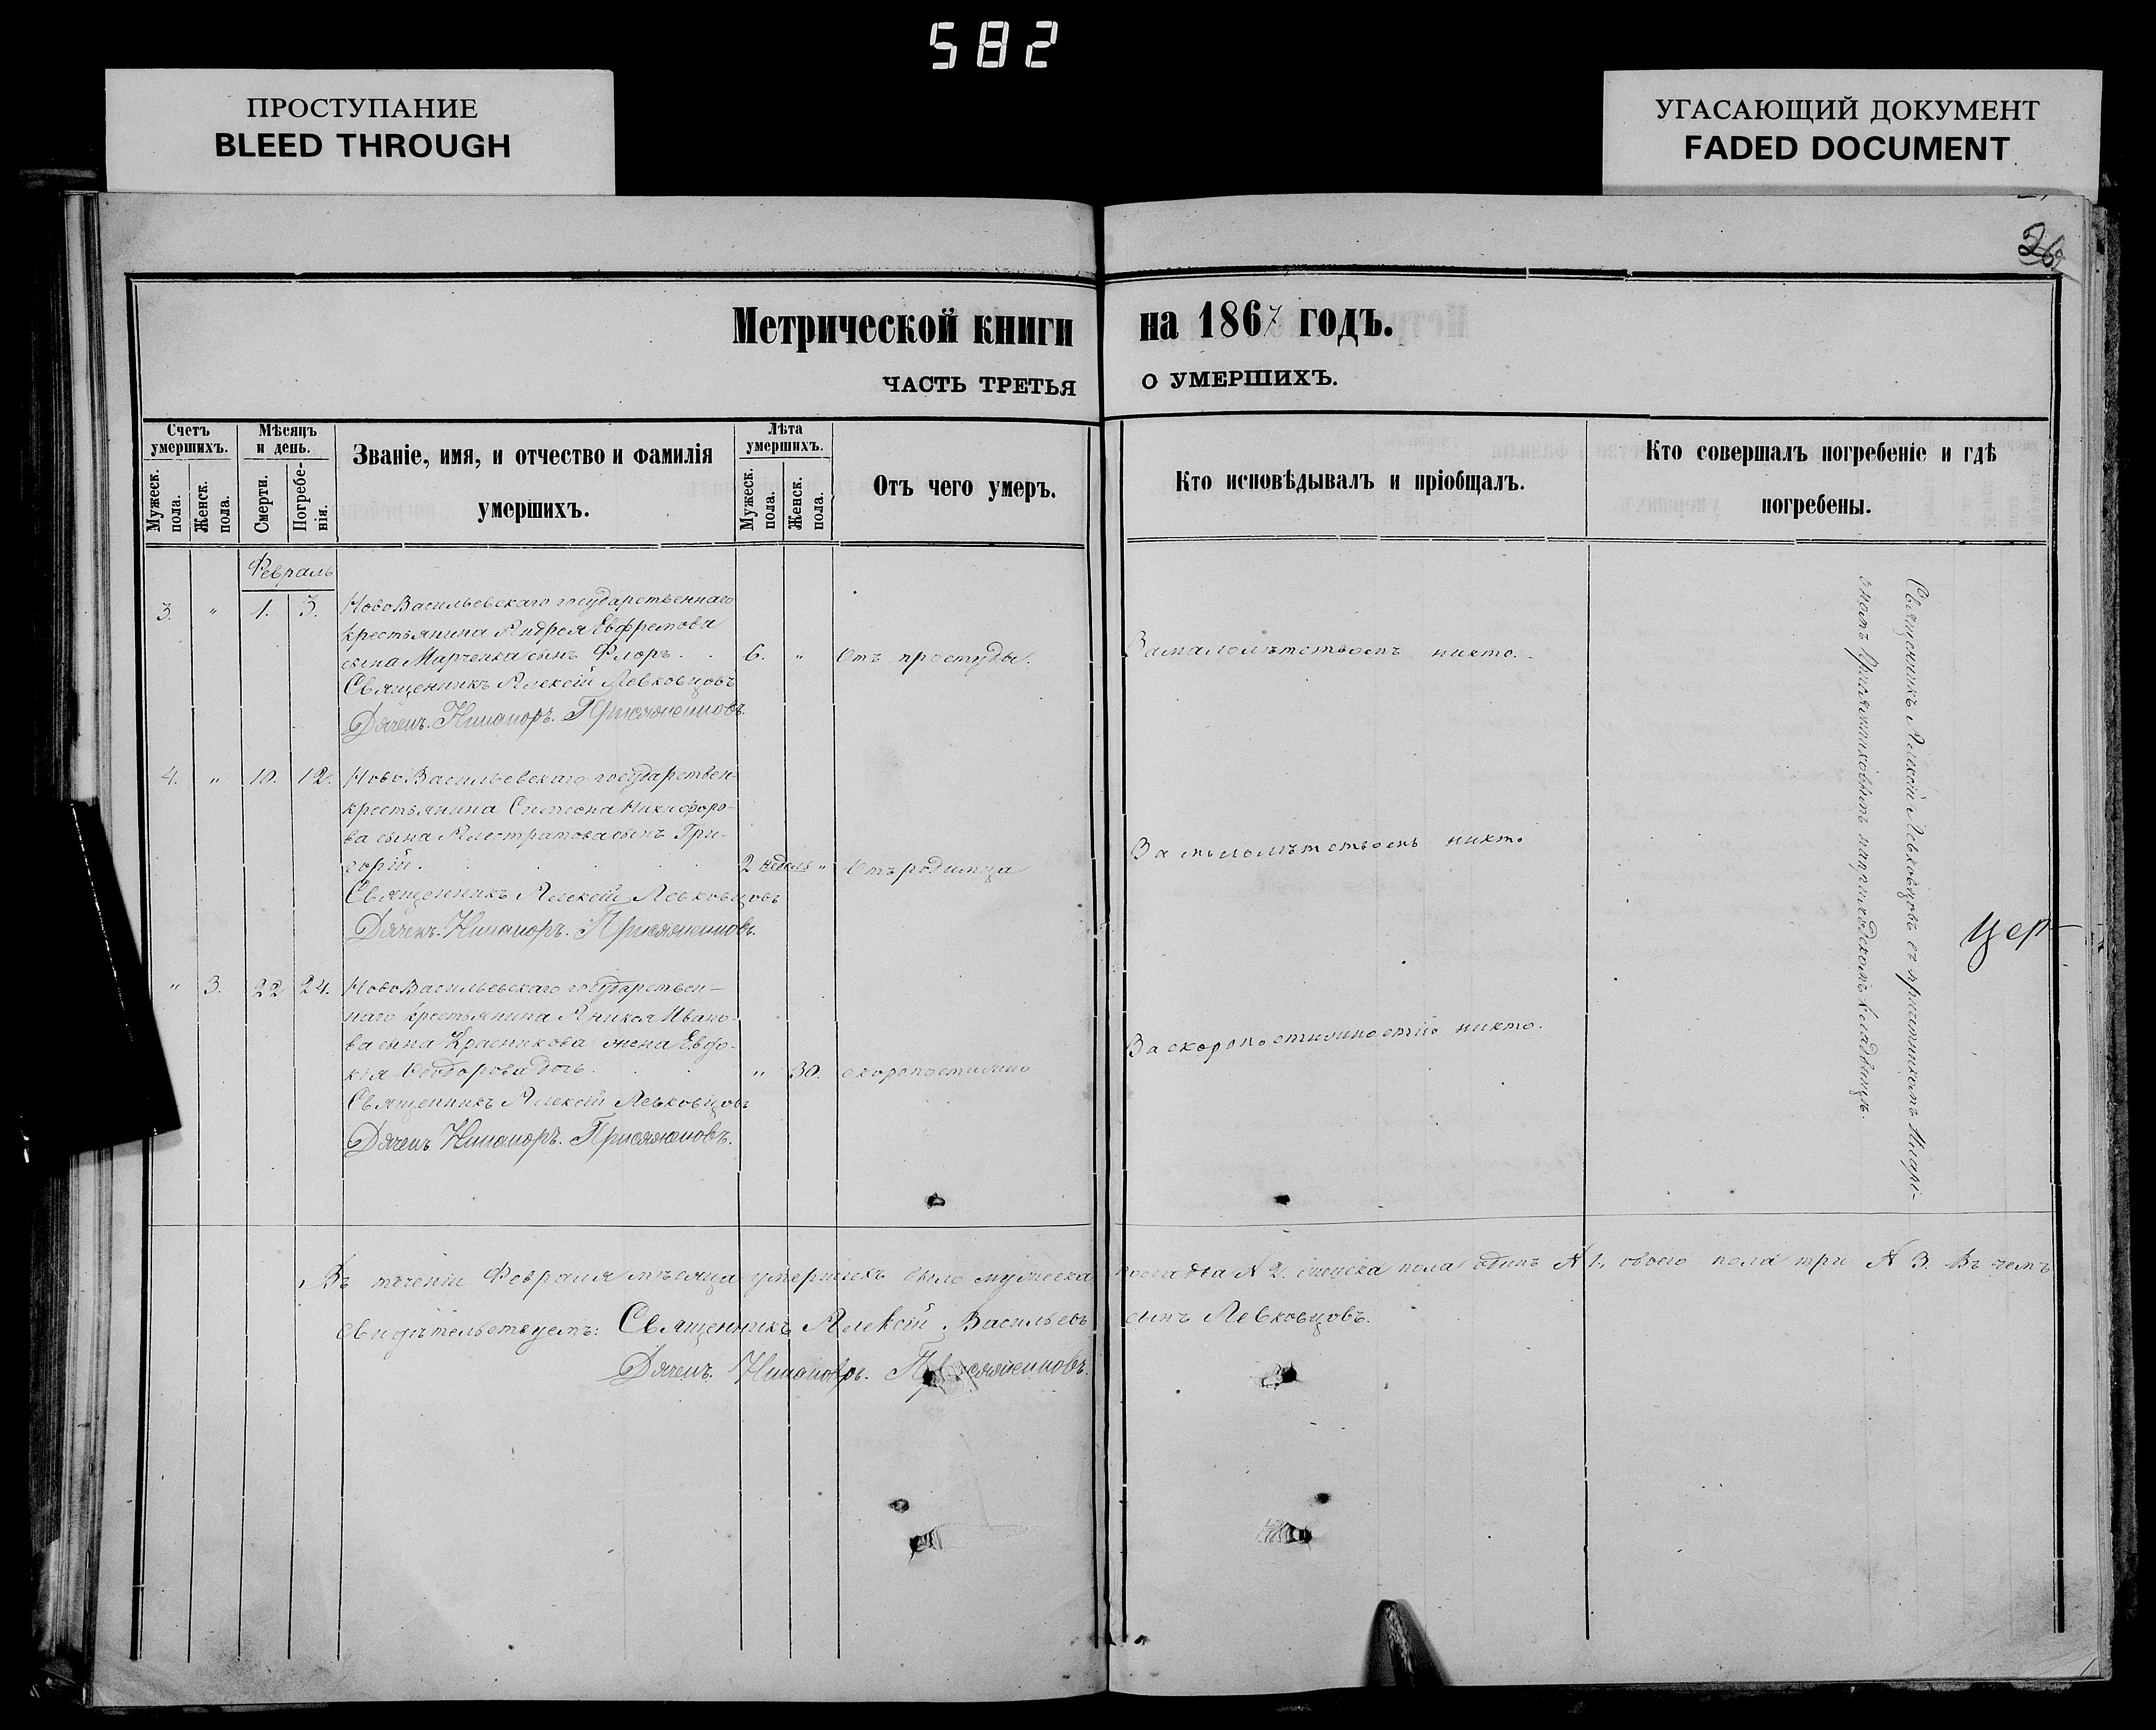 582
ПРОСТУПАНИЕ
BLEED THROUGH
УГАСАЮЩИЙ ДОКУМЕНТ
FADED DOCUMENT
26
Метрической книги на 1867 годъ.
ЧАСТЬ ТРЕТЬЯ О УМЕРШИХЪ.
Счетъ умершихъ.
Мужеск. пола.
Женск. пола.
Мѣсяцъ и день.
Смерти.
Погребе-нія.
Званіе, имя, и отчество и фамилія
умершихъ.
Лѣта умершихъ.
Мужеск. пола.
Женск. пола.
Отъ чего умеръ.
Кто исповѣдывалъ и пріобщалъ.
Кто совершалъ погребеніе и гдѣ
погребены.
Февраль
3. " 1. 3. НовоВасильевскаго государственнаго
крестьянина Андрея Евфремова
сына Марченка сынъ Флоръ. 6. " Отъ простуды. За малолѣтствомъ никто.
Священникъ Алексій Левковцовъ
Дячекъ. Никаноръ. Присяжниковъ.
4. " 10. 12. НовоВасильевскаго государствен-
крестьянина Симеона Никифоро-
ва сына сынъ Гри-
горій. 2 недель " Отъ родимца За малолѣтствомъ никто
Священникъ Алексій Левковцовъ
Дячекъ. Никаноръ. Присяжниковъ.
" 3. 22 24. НовоВасильевскаго государствен-
наго крестьянина Аникея Ивано-
ва сына Красникова жена Евдо-
кія Ѳеодорова дочь. " 30. скоропостижно За скоропостижностію никто.
Священникъ Алексій Левковцовъ
Дячекъ Никаноръ. Присяжниковъ.
Священникъ Алексій Левковцовъ съ причетникомъ
Присяжниковымъ на приходскомъ кладбищѣ.
Цер-
Въ теченіи Февраля мѣсяца умершихъ было мужеска пола два № 2. женска пола одинъ № 1., обоего пола три № 3. Въ чемъ
свидѣтельствуемъ: Священникъ Алексій Васильевъ сынъ Левковцовъ.
Дячекъ. Никаноръ. Присяжниковъ.